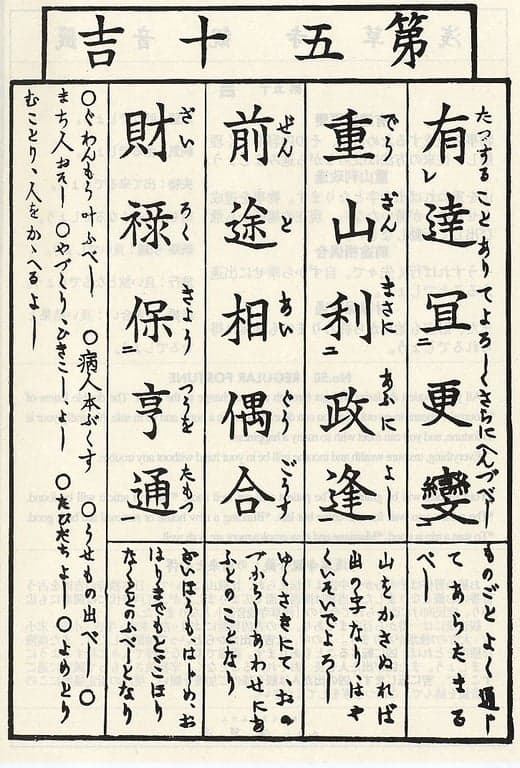 第五十吉
たっすることありてよろしくさらにへんづべし
有達冝更變
レ二二一
ものごとよく通じ
てあらたまる
べし
でうざんまさにあふによし
重山利政逢
二一
山をかさぬれば
出の字なり、はや
くいそいでよろし
ぜんとあいぐうごうす
前途相偶合
ゆくさきにておの
づからあわせにあ
ふとのことなり
ざいろくきようつうをたもつ
財禄保亨通
二一
ざいほうも、はじめ、お
はりまでもとゞこほり
なくとをのふべしとなり
〇ぐわんもう叶ふべし 〇病人本ぶくす 〇うせもの出べし 〇
まち人おそし〇やづくり、ひきこしよし 〇たびだちよし 〇よめとり
むことり、人をかゝへるよし